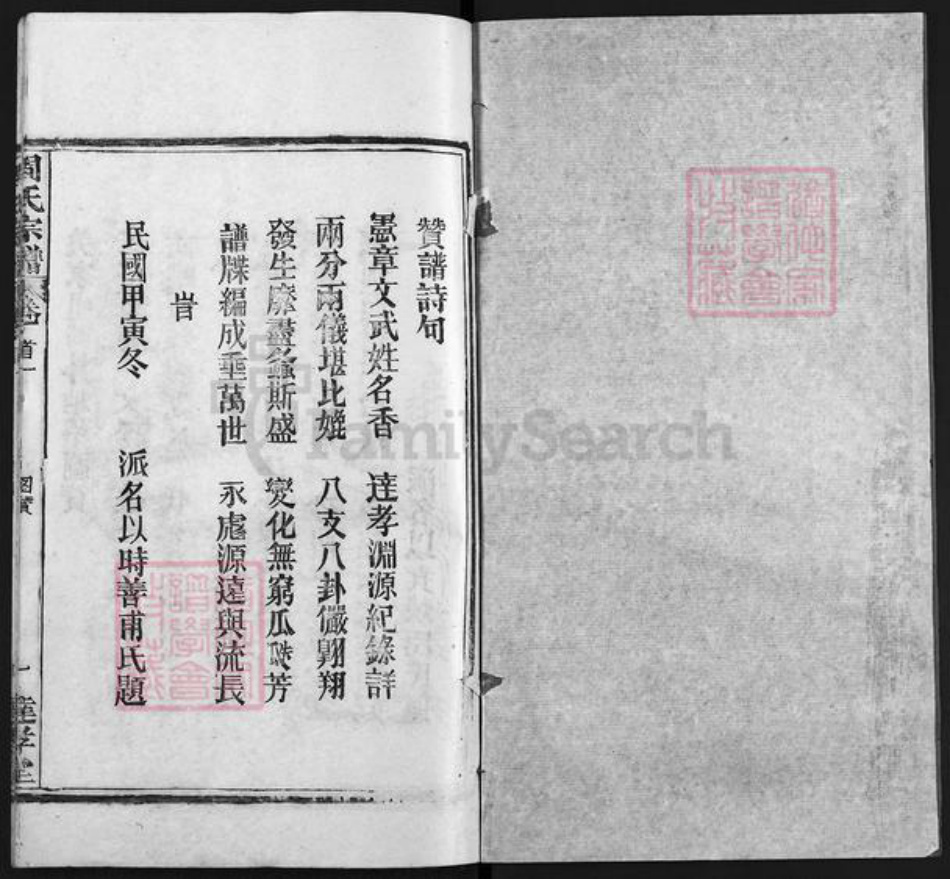 贊譜詩句
憲章文武姓名香 達孝淵源紀錄詳
兩分兩儀堪比媲 八支八卦儼翺翔
發生靡盡螽斯盛 變化無窮瓜瓞芳
譜牒編成垂萬世 永慮源遠與流長
旹
民國甲寅冬 派名以時善甫氏題
周氏宗譜 卷首一 圖贊 一 達孝堂
譜學會
FamilySearch